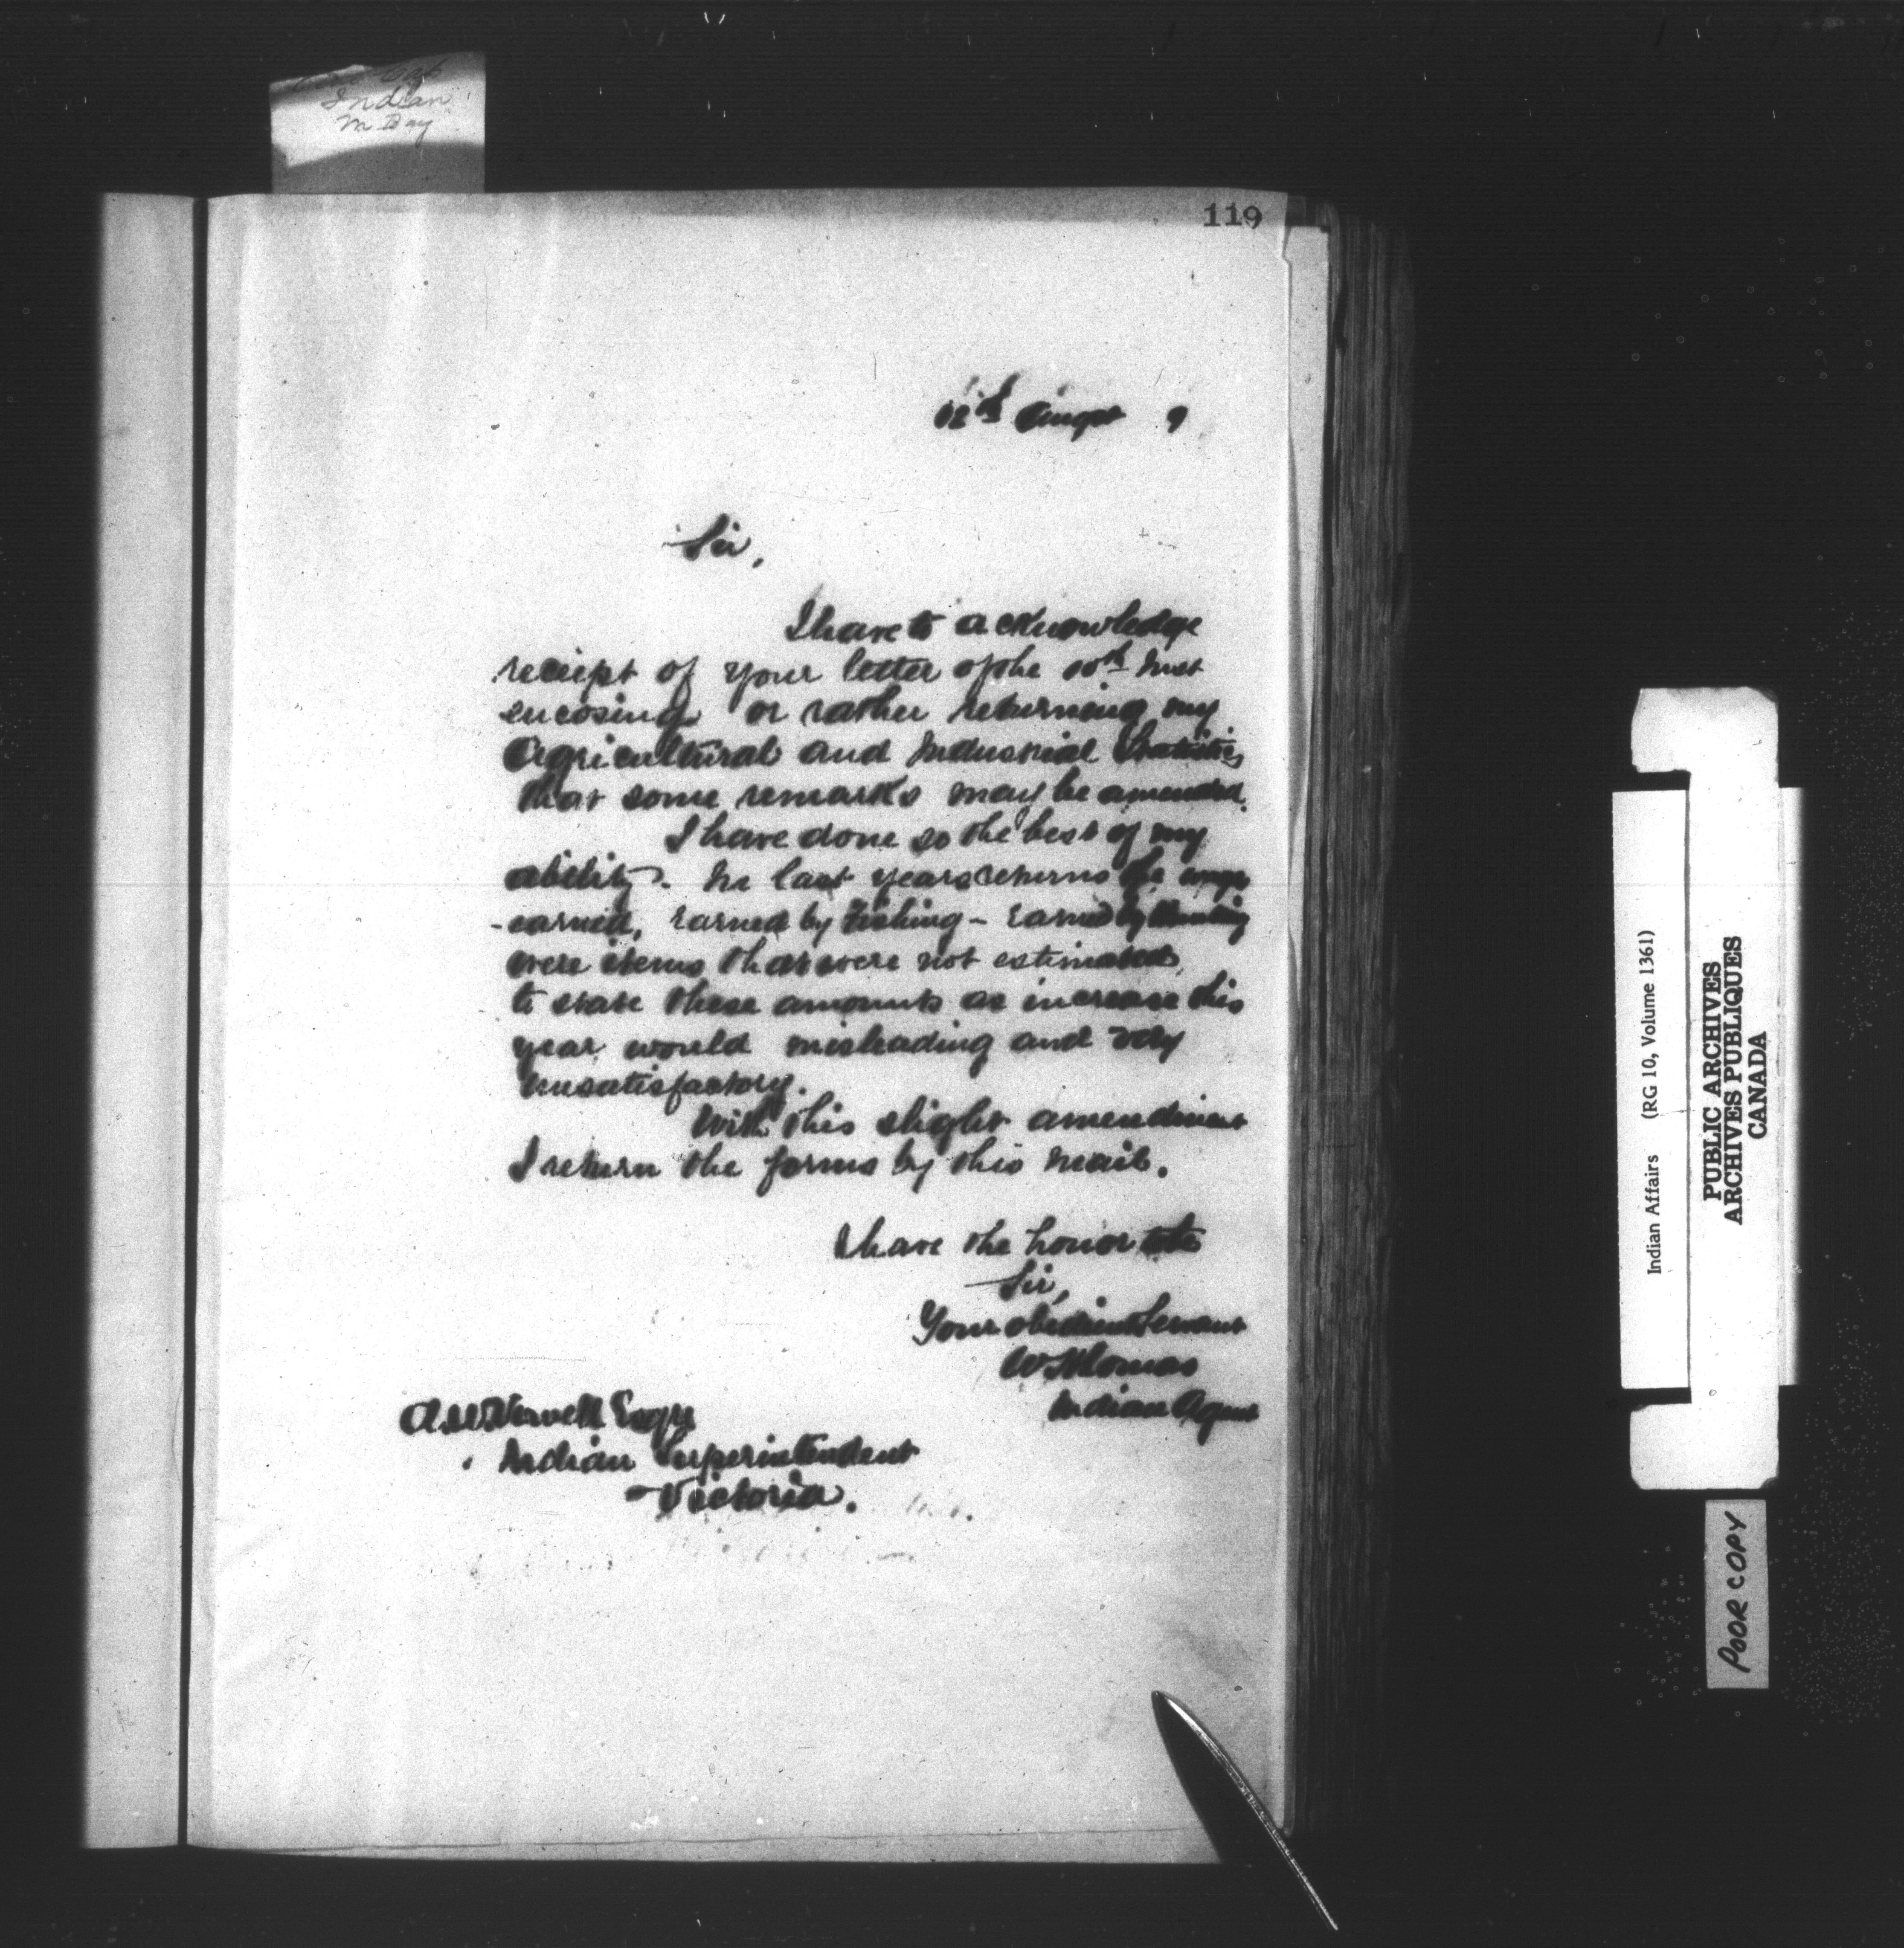 Indian
119
12th August 9
Sir,
I have to acknowledge
receipt of your letter of the 10th Inst
encosing or rather returning my
Agricultural and Industrial Statistics
that some remarks may be amended.
I have done so the best of my
ability. In last years returns the wages
- earned, Earned by Fishing - Earned by Hunting
were items that were not estimated,
to state these amounts as increase this
year would misleading and very
unsatisfactory.
With this slight amendment
I return the forms by this mail.
I have the honor
Sir,
Your obedient Servant
W Thomas
Indian Agent
A.W. Vowell Esqre
Indian Superintendent
Victoria.
Indian Affairs (RG 10, Volume 1361)
PUBLIC ARCHIVES
ARCHIVES PUBLIQUES
CANADA
POOR COPY